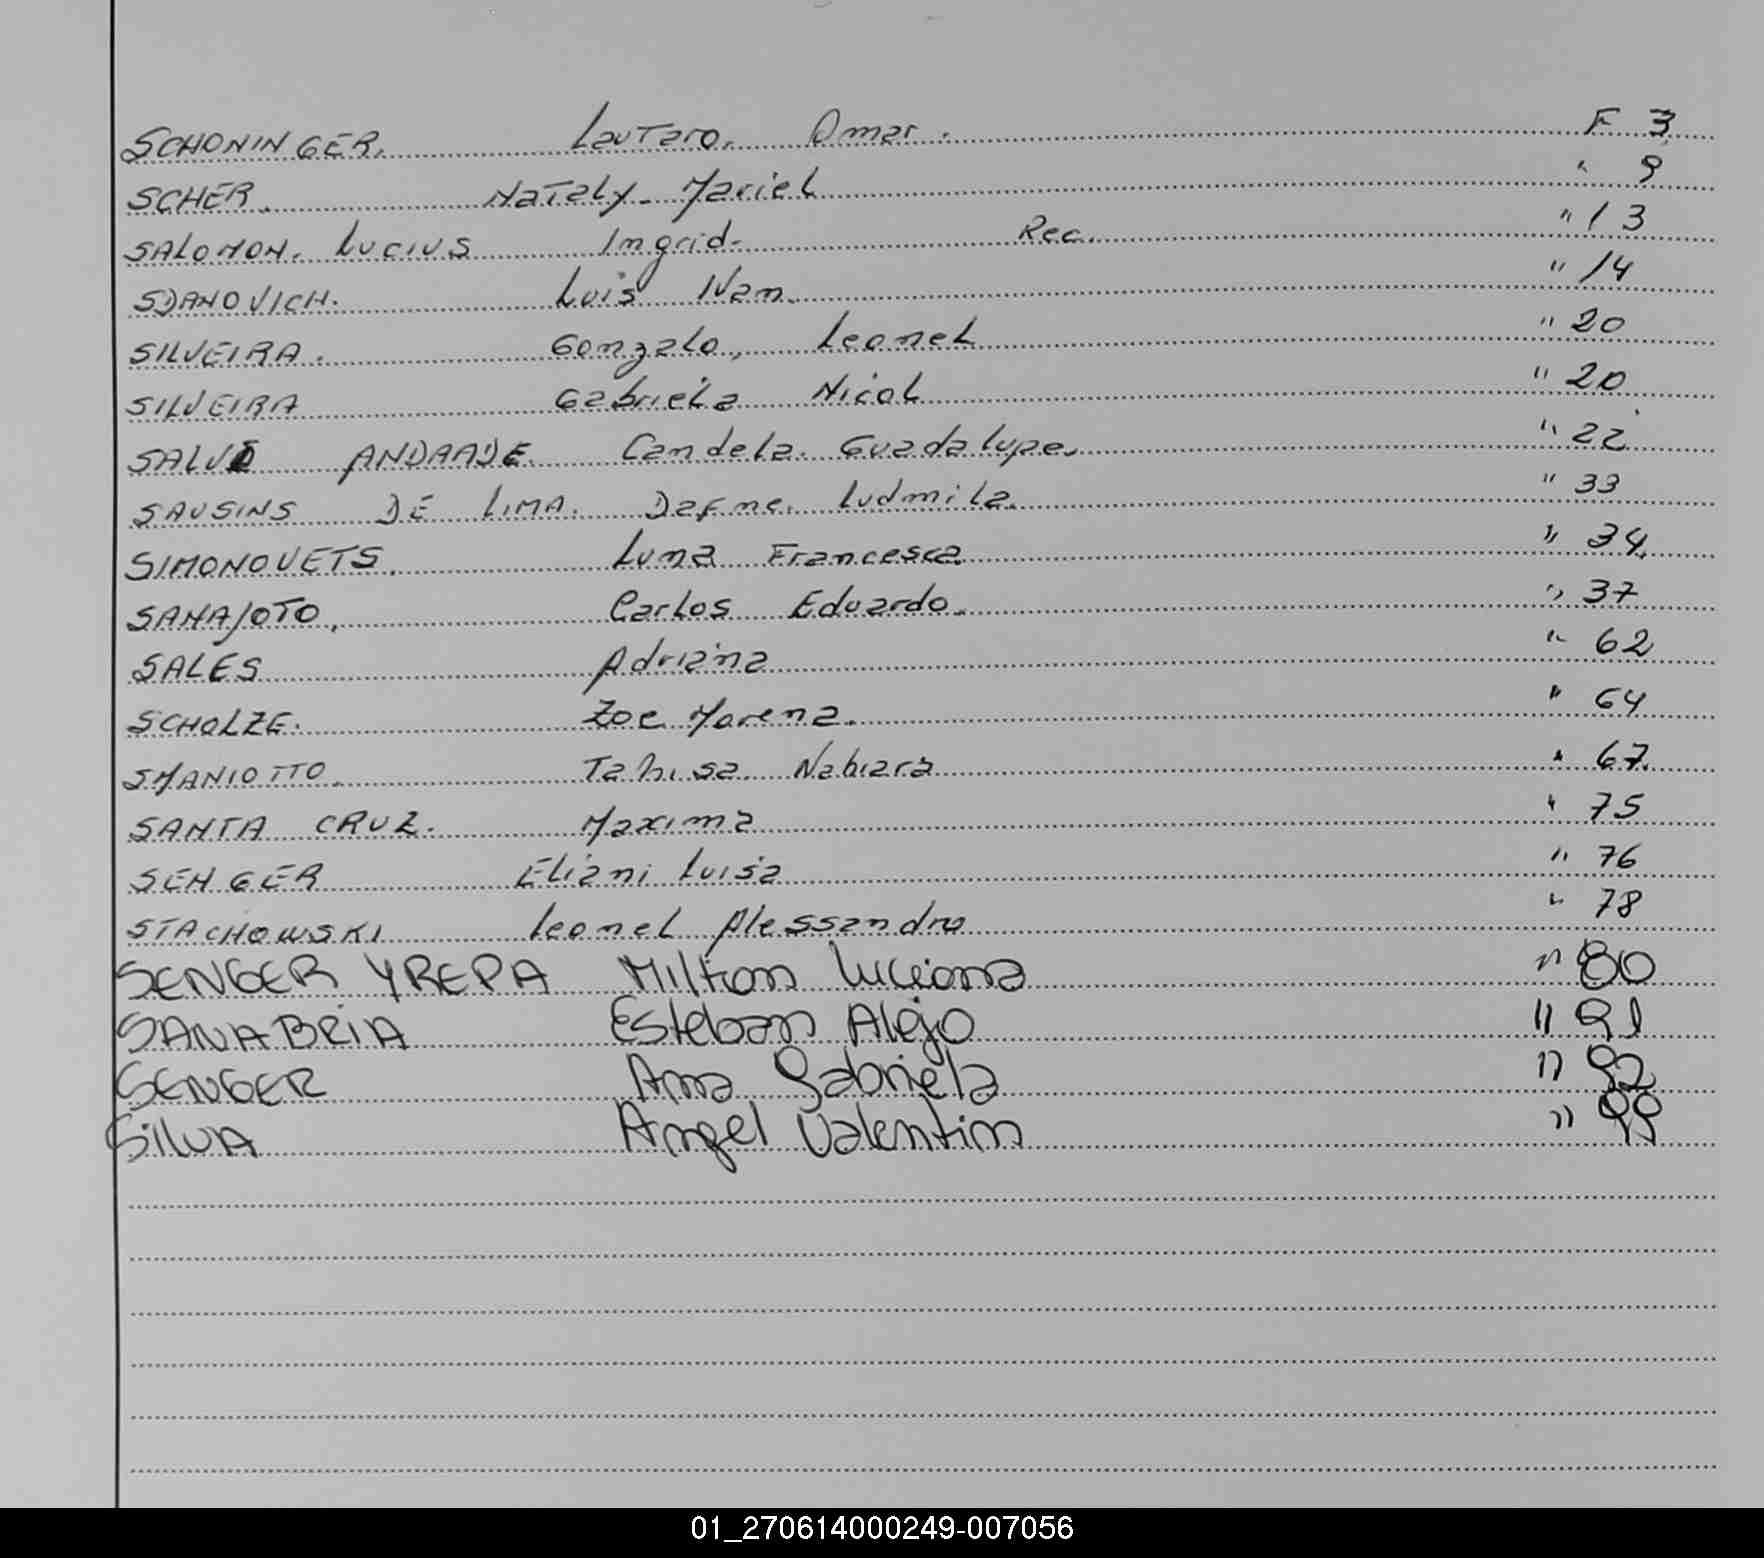 SCHONINGER. Lautaro. Omar. F 3
SCHER. Nataly Mariel " 9
SALOMON. LUCIUS Ingrid. Rec. " 13
SDANOVICH. Luis Ivan. " 14
SILVEIRA. Gonzalo, Leonel " 20
SILVEIRA Gabriela Nicol " 20
ANDRADE. Candela. Guadalupe. " 22
SAUSINS DE LIMA. Dafne. Ludmila. " 33
SIMONOVETS. Luna Francesca. " 34.
SANAJOTO. Carlos Eduardo. " 37
SALES Adriana " 62
SCHOLZE. Zoe Morena. " 64
SMANIOTTO. Nahiara " 67.
SANTA CRUZ. Maxima " 75
SENGER Eliani Luisa " 76
STACHOWSKI Leonel Alessandro " 78
SENGER YREPA Milton Luciana " 80
SANABRIA Esteban Alejo " 91
SENGER Ana Gabriela " 92
SILVA Angel Valentin " 99
01_270614000249-007056